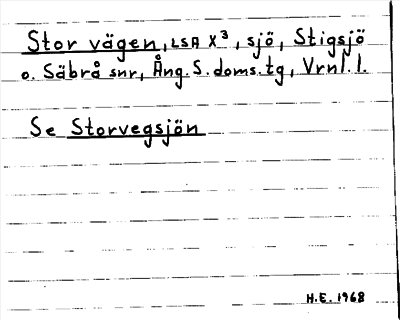 Stor vägen, LSA X³, sjö, Stigsjö
o. Säbrå snr, Ång. S. doms. tg, Vrnl. l.
Se Storvegsjön
H.E. 1968